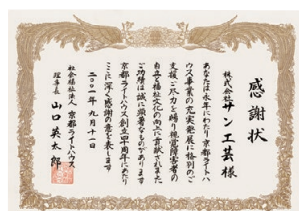 感謝状
株式会社サン工芸様
あなたは永年にわたり京都ライトハ
ウス事業の充実発展に格別のご
支援ご尽力を賜り視覚障害者の
自立と福祉文化の向上に貢献されました
ご功績は誠に顕著なものがあります
京都ライトハウス創立四十周年にあたり
ここに深く感謝の意を表します
二〇〇一年九月十一日
社会福祉法人京都ライトハウス
理事長山口英太郎